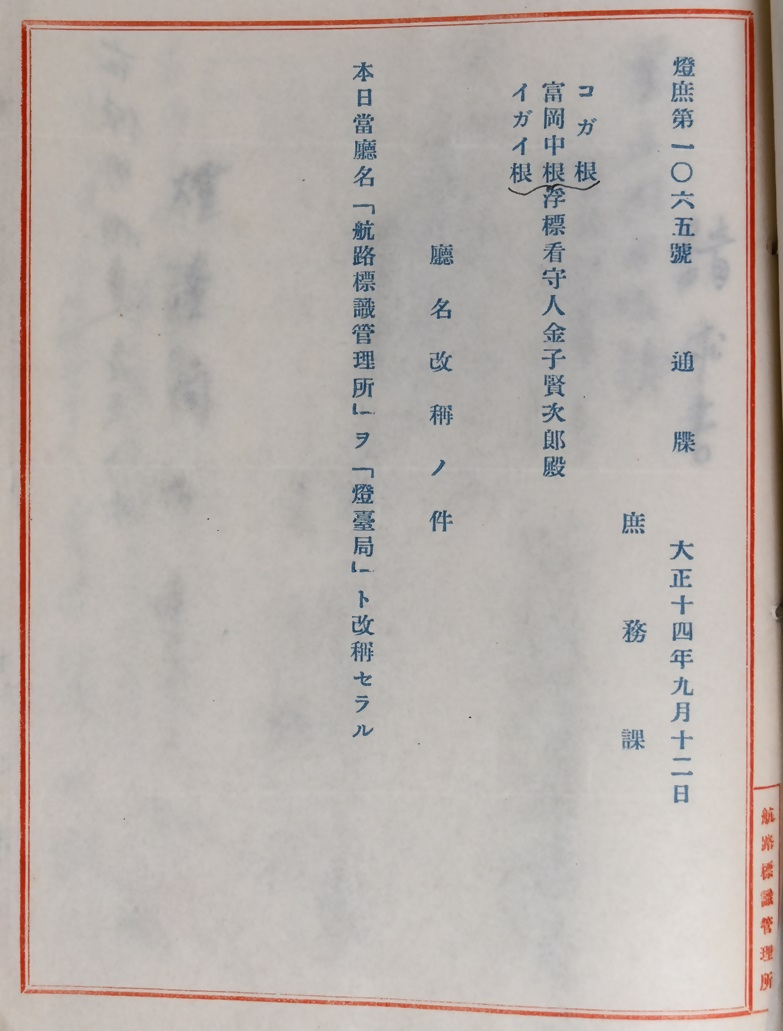 燈庶第一〇六五號 通牒 大正十四年九月十二日
庶務課
コガ根
富岡中根浮標看守人金子賢次郎殿
イガイ根
廳名改稱ノ件
本日當廳名「航路標識管理所」ヲ「燈臺局」ト改稱セラル
航路標識管理所